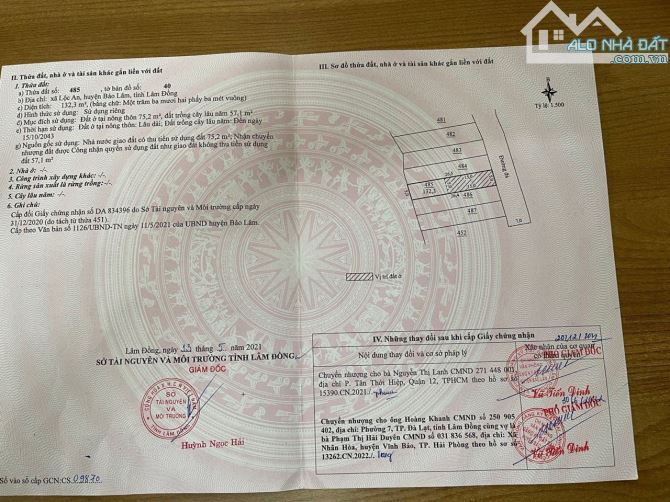 ALO NHÀ ĐẤT
II. Thửa đất, nhà ở và tài sản khác gắn liền với đất
1. Thửa đất:
a) Thửa đất số: 485, tờ bản đồ số: 40
b) Địa chỉ: xã Lộc An, huyện Bảo Lâm, tỉnh Lâm Đồng
c) Diện tích: 132,3 m², (bằng chữ: Một trăm ba mươi hai phẩy ba mét vuông)
d) Hình thức sử dụng: Sử dụng riêng
đ) Mục đích sử dụng: Đất ở tại nông thôn 75,2 m², đất trồng cây lâu năm 57,1 m²
e) Thời hạn sử dụng: Đất ở tại nông thôn: Lâu dài; Đất trồng cây lâu năm: Đến ngày
15/10/2043
g) Nguồn gốc sử dụng: Nhà nước giao đất có thu tiền sử dụng đất 75,2 m²; Nhận chuyển
nhượng đất được Công nhận quyền sử dụng đất như giao đất không thu tiền sử dụng
đất 57,1 m²
2. Nhà ở: -/-
3. Công trình xây dựng khác: -/-
4. Rừng sản xuất là rừng trồng: -/-
5. Cây lâu năm: -/-
6. Ghi chú:
Cấp đổi Giấy chứng nhận số DA 834396 do Sở Tài nguyên và Môi trường cấp ngày
31/12/2020 (do tách từ thửa 451).
Cấp theo Văn bản số 1126/UBND-TN ngày 11/5/2021 của UBND huyện Bảo Lâm.
Lâm Đồng, ngày 13 tháng 5 năm 2021
SỞ TÀI NGUYÊN VÀ MÔI TRƯỜNG TỈNH LÂM ĐỒNG
GIÁM ĐỐC
SỞ
TÀI NGUYÊN
VÀ
MÔI TRƯỜNG
Huỳnh Ngọc Hải
Số vào sổ cấp GCN:CS.09870
III. Sơ đồ thửa đất, nhà ở và tài sản khác gắn liền với đất
Tỷ lệ 1:500
481
482
483
486
485
132,3
487
452
Đường đi
Vị trí đất ở
IV. Những thay đổi sau khi cấp Giấy chứng nhận
Nội dung thay đổi và cơ sở pháp lý
Xác nhận của cơ quan
có thẩm quyền
Chuyển nhượng cho bà Nguyễn Thị Lanh CMND 271 448 001,
địa chỉ P. Tân Thới Hiệp, Quận 12, TPHCM theo hồ sơ số
15390.CN.2021./
PHÓ GIÁM ĐỐC
Vũ Tiến Định
Chuyển nhượng cho ông Hoàng Khanh CMND số 250 905
402, địa chỉ: Phường 7, TP. Đà Lạt, tỉnh Lâm Đồng cùng vợ là
bà Phạm Thị Hải Duyên CMND số 031 836 568, địa chỉ: Xã
Nhân Hòa, huyện Vĩnh Bảo, TP. Hải Phòng theo hồ sơ số
13262.CN.2022./
PHÓ GIÁM ĐỐC
Vũ Tiến Định